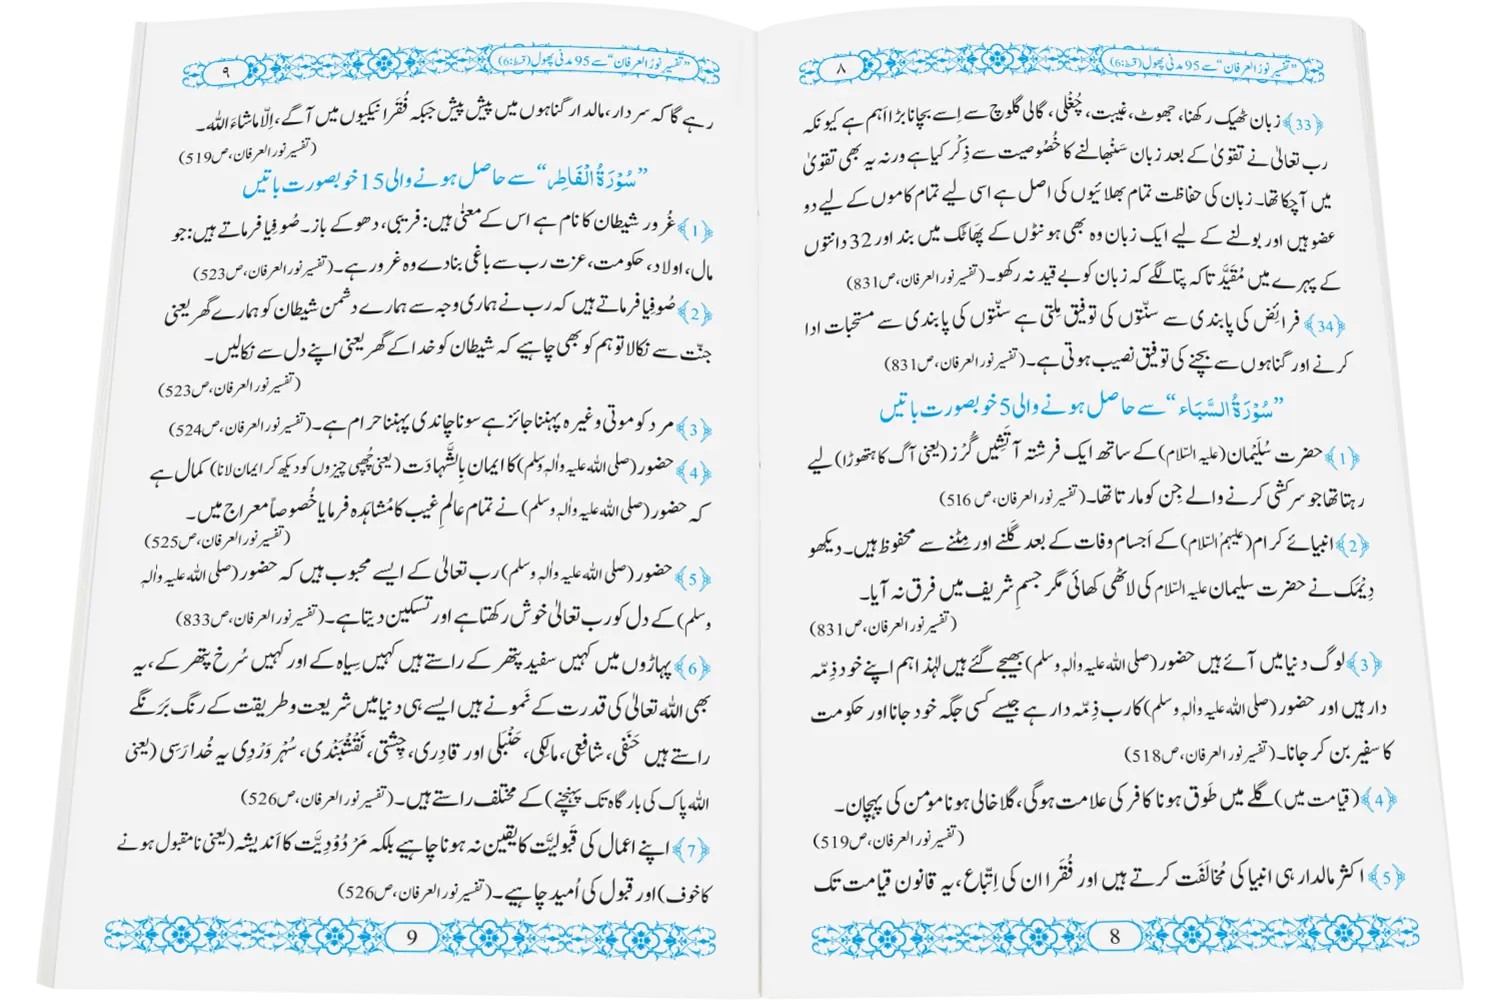 ”تفسیر نورُ العرفان“ سے 95 مدنی پھول (قسط:6)
۸
﴿33﴾ زبان ٹھیک رکھنا، جھوٹ، غیبت، چُغْلی، گالی گلوچ سے اِسے بچانا بڑا اَہم ہے کیونکہ
رب تعالیٰ نے تقویٰ کے بعد زبان سَنْبھالنے کا خُصُوصیت سے ذِکْر کیا ہے ورنہ یہ بھی تقویٰ
میں آچکا تھا۔ زبان کی حفاظت تمام بھلائیوں کی اصل ہے اسی لیے تمام کاموں کے لیے دو
عضو ہیں اور بولنے کے لیے ایک زبان وہ بھی ہونٹوں کے پھاٹک میں بند اور 32 دانتوں
کے پہرے میں مُقَیَّد تاکہ پتا لگے کہ زبان کو بے قید نہ رکھو۔ (تفسیر نور العرفان، ص831)
﴿34﴾ فرائِض کی پابندی سے سنّتوں کی توفیق مِلتی ہے سنّتوں کی پابندی سے مستحبات ادا
کرنے اور گناہوں سے بچنے کی توفیق نصیب ہوتی ہے۔ (تفسیر نور العرفان، ص831)
”سُوْرَۃُ السَّبَاء“ سے حاصل ہونے والی 5 خوبصورت باتیں
﴿1﴾ حضرت سُلَیْمان (علیہ السّلام) کے ساتھ ایک فرشتہ آتَشِیں گُرْز (یعنی آگ کا ہتھوڑا) لیے
رہتا تھا جو سرکشی کرنے والے جِن کو مارتا تھا۔ (تفسیر نور العرفان، ص 516)
﴿2﴾ انبیائے کرام (علیہمُ السّلام) کے اَجسام وفات کے بعد گَلنے اور مِٹنے سے محفوظ ہیں۔ دیکھو
دِیْمَک نے حضرت سلیمان علیہ السّلام کی لاٹھی کھائی مگر جسمِ شریف میں فرق نہ آیا۔
(تفسیر نور العرفان، ص831)
﴿3﴾ لوگ دنیا میں آئے ہیں حضور (صلی اللہ علیہ واٰلہٖ وسلم) بھیجے گئے ہیں لہٰذا ہم اپنے خود ذِمّہ
دار ہیں اور حضور (صلی اللہ علیہ واٰلہٖ وسلم) کا رب ذِمّہ دار ہے جیسے کسی جگہ خود جانا اور حکومت
کا سفیر بن کر جانا۔ (تفسیر نور العرفان، ص518)
﴿4﴾ (قیامت میں) گلے میں طَوق ہونا کافر کی علامت ہوگی، گلا خالی ہونا مومن کی پہچان۔
(تفسیر نور العرفان، ص519)
﴿5﴾ اکثر مالدار ہی انبیا کی مُخالَفَت کرتے ہیں اور فُقَرا ان کی اِتِّباع، یہ قانون قیامت تک
8
”تفسیر نورُ العرفان“ سے 95 مدنی پھول (قسط:6)
۹
رہے گا کہ سردار، مالدار گناہوں میں پیش پیش جبکہ فُقَرا نیکیوں میں آگے، اِلّا ماشاءَ اللہ۔
(تفسیر نور العرفان، ص519)
”سُوْرَۃُ الْفَاطِر“ سے حاصل ہونے والی 15 خوبصورت باتیں
﴿1﴾ غُرور شیطان کا نام ہے اس کے معنیٰ ہیں: فریبی، دھوکے باز۔ صُوفیا فرماتے ہیں: جو
مال، اولاد، حکومت، عزت رب سے باغی بنادے وہ غرور ہے۔ (تفسیر نور العرفان، ص523)
﴿2﴾ صُوفیا فرماتے ہیں کہ رب نے ہماری وجہ سے ہمارے دشمن شیطان کو ہمارے گھر یعنی
جنّت سے نکالا تو ہم کو بھی چاہیے کہ شیطان کو خدا کے گھر یعنی اپنے دل سے نکالیں۔
(تفسیر نور العرفان، ص523)
﴿3﴾ مرد کو موتی وغیرہ پہننا جائز ہے سونا چاندی پہننا حرام ہے۔ (تفسیر نور العرفان، ص524)
﴿4﴾ حضور (صلی اللہ علیہ واٰلہٖ وسلم) کا ایمان بِالشَّہادَت (یعنی چُھپی چیزوں کو دیکھ کر ایمان لانا) کمال ہے
کہ حضور (صلی اللہ علیہ واٰلہٖ وسلم) نے تمام عالمِ غیب کا مُشاہَدہ فرمایا خُصوصاً معراج میں۔
(تفسیر نور العرفان، ص525)
﴿5﴾ حضور (صلی اللہ علیہ واٰلہٖ وسلم) رب تعالیٰ کے ایسے محبوب ہیں کہ حضور (صلی اللہ علیہ واٰلہٖ
وسلم) کے دل کو رب تعالیٰ خوش رکھتا ہے اور تسکین دیتا ہے۔ (تفسیر نور العرفان، ص833)
﴿6﴾ پہاڑوں میں کہیں سفید پتھر کے راستے ہیں کہیں سِیاہ کے اور کہیں سُرخ پتھر کے، یہ
بھی اللہ تعالیٰ کی قدرت کے نَمونے ہیں ایسے ہی دنیا میں شریعت و طریقت کے رنگ بَرَنگے
راستے ہیں حَنَفی، شافِعی، مالِکی، حَنْبَلی اور قادِری، چِشتی، نَقْشْبَنْدی، سُہْروَرْدِی یہ خُدارَسی (یعنی
اللہ پاک کی بارگاہ تک پہنچنے) کے مختلف راستے ہیں۔ (تفسیر نور العرفان، ص526)
﴿7﴾ اپنے اعمال کی قَبولیَّت کا یقین نہ ہونا چاہیے بلکہ مَرْدُوْدِیَّت کا اَندیشہ (یعنی نامقبول ہونے
کا خوف) اور قبول کی اُمید چاہیے۔ (تفسیر نور العرفان، ص526)
9